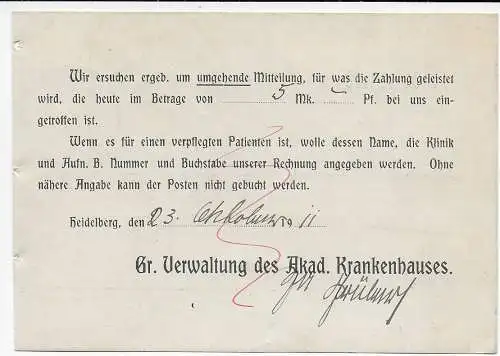 Wir ersuchen ergeb. um umgehende Mitteilung, für was die Zahlung geleistet
wird, die heute im Betrage von 5 Mk. – Pf. bei uns ein-
getroffen ist.
Wenn es für einen verpflegten Patienten ist, wolle dessen Name, die Klinik
und Aufn. B. Nummer und Buchstabe unserer Rechnung angegeben werden. Ohne
nähere Angabe kann der Posten nicht gebucht werden.
Heidelberg, den 23. Oktober 19 11
Gr. Verwaltung des Akad. Krankenhauses.